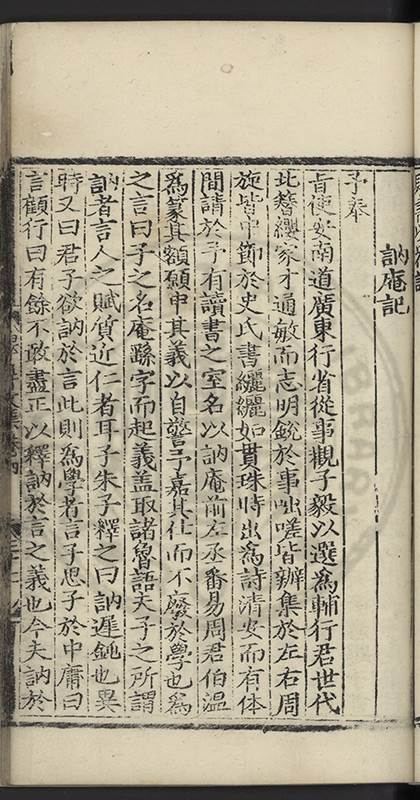 訥庵記
予奉
旨使安南道廣東行省從事觀子毅以選為輔行君世代
北簪纓家才通敏而志明銳於事咄嗟皆辦集於左右周
旋皆中節於史氏書纚纚如貫珠時出為詩清安而有体
間請於予有讀書之室名以訥庵前左丞番易周君伯溫
為篆其額願申其義以自警予嘉其仕而不廢於學也為
之言曰子之名庵繇字而起義盖取諸魯語夫子之所謂
訥者言人之賦質近仁者耳子朱子釋之曰訥遲鈍也異
時又曰君子欲訥於言此則為學者言子思子於中庸曰
言顧行曰有餘不敢盡正以釋訥於言之義也今夫訥於